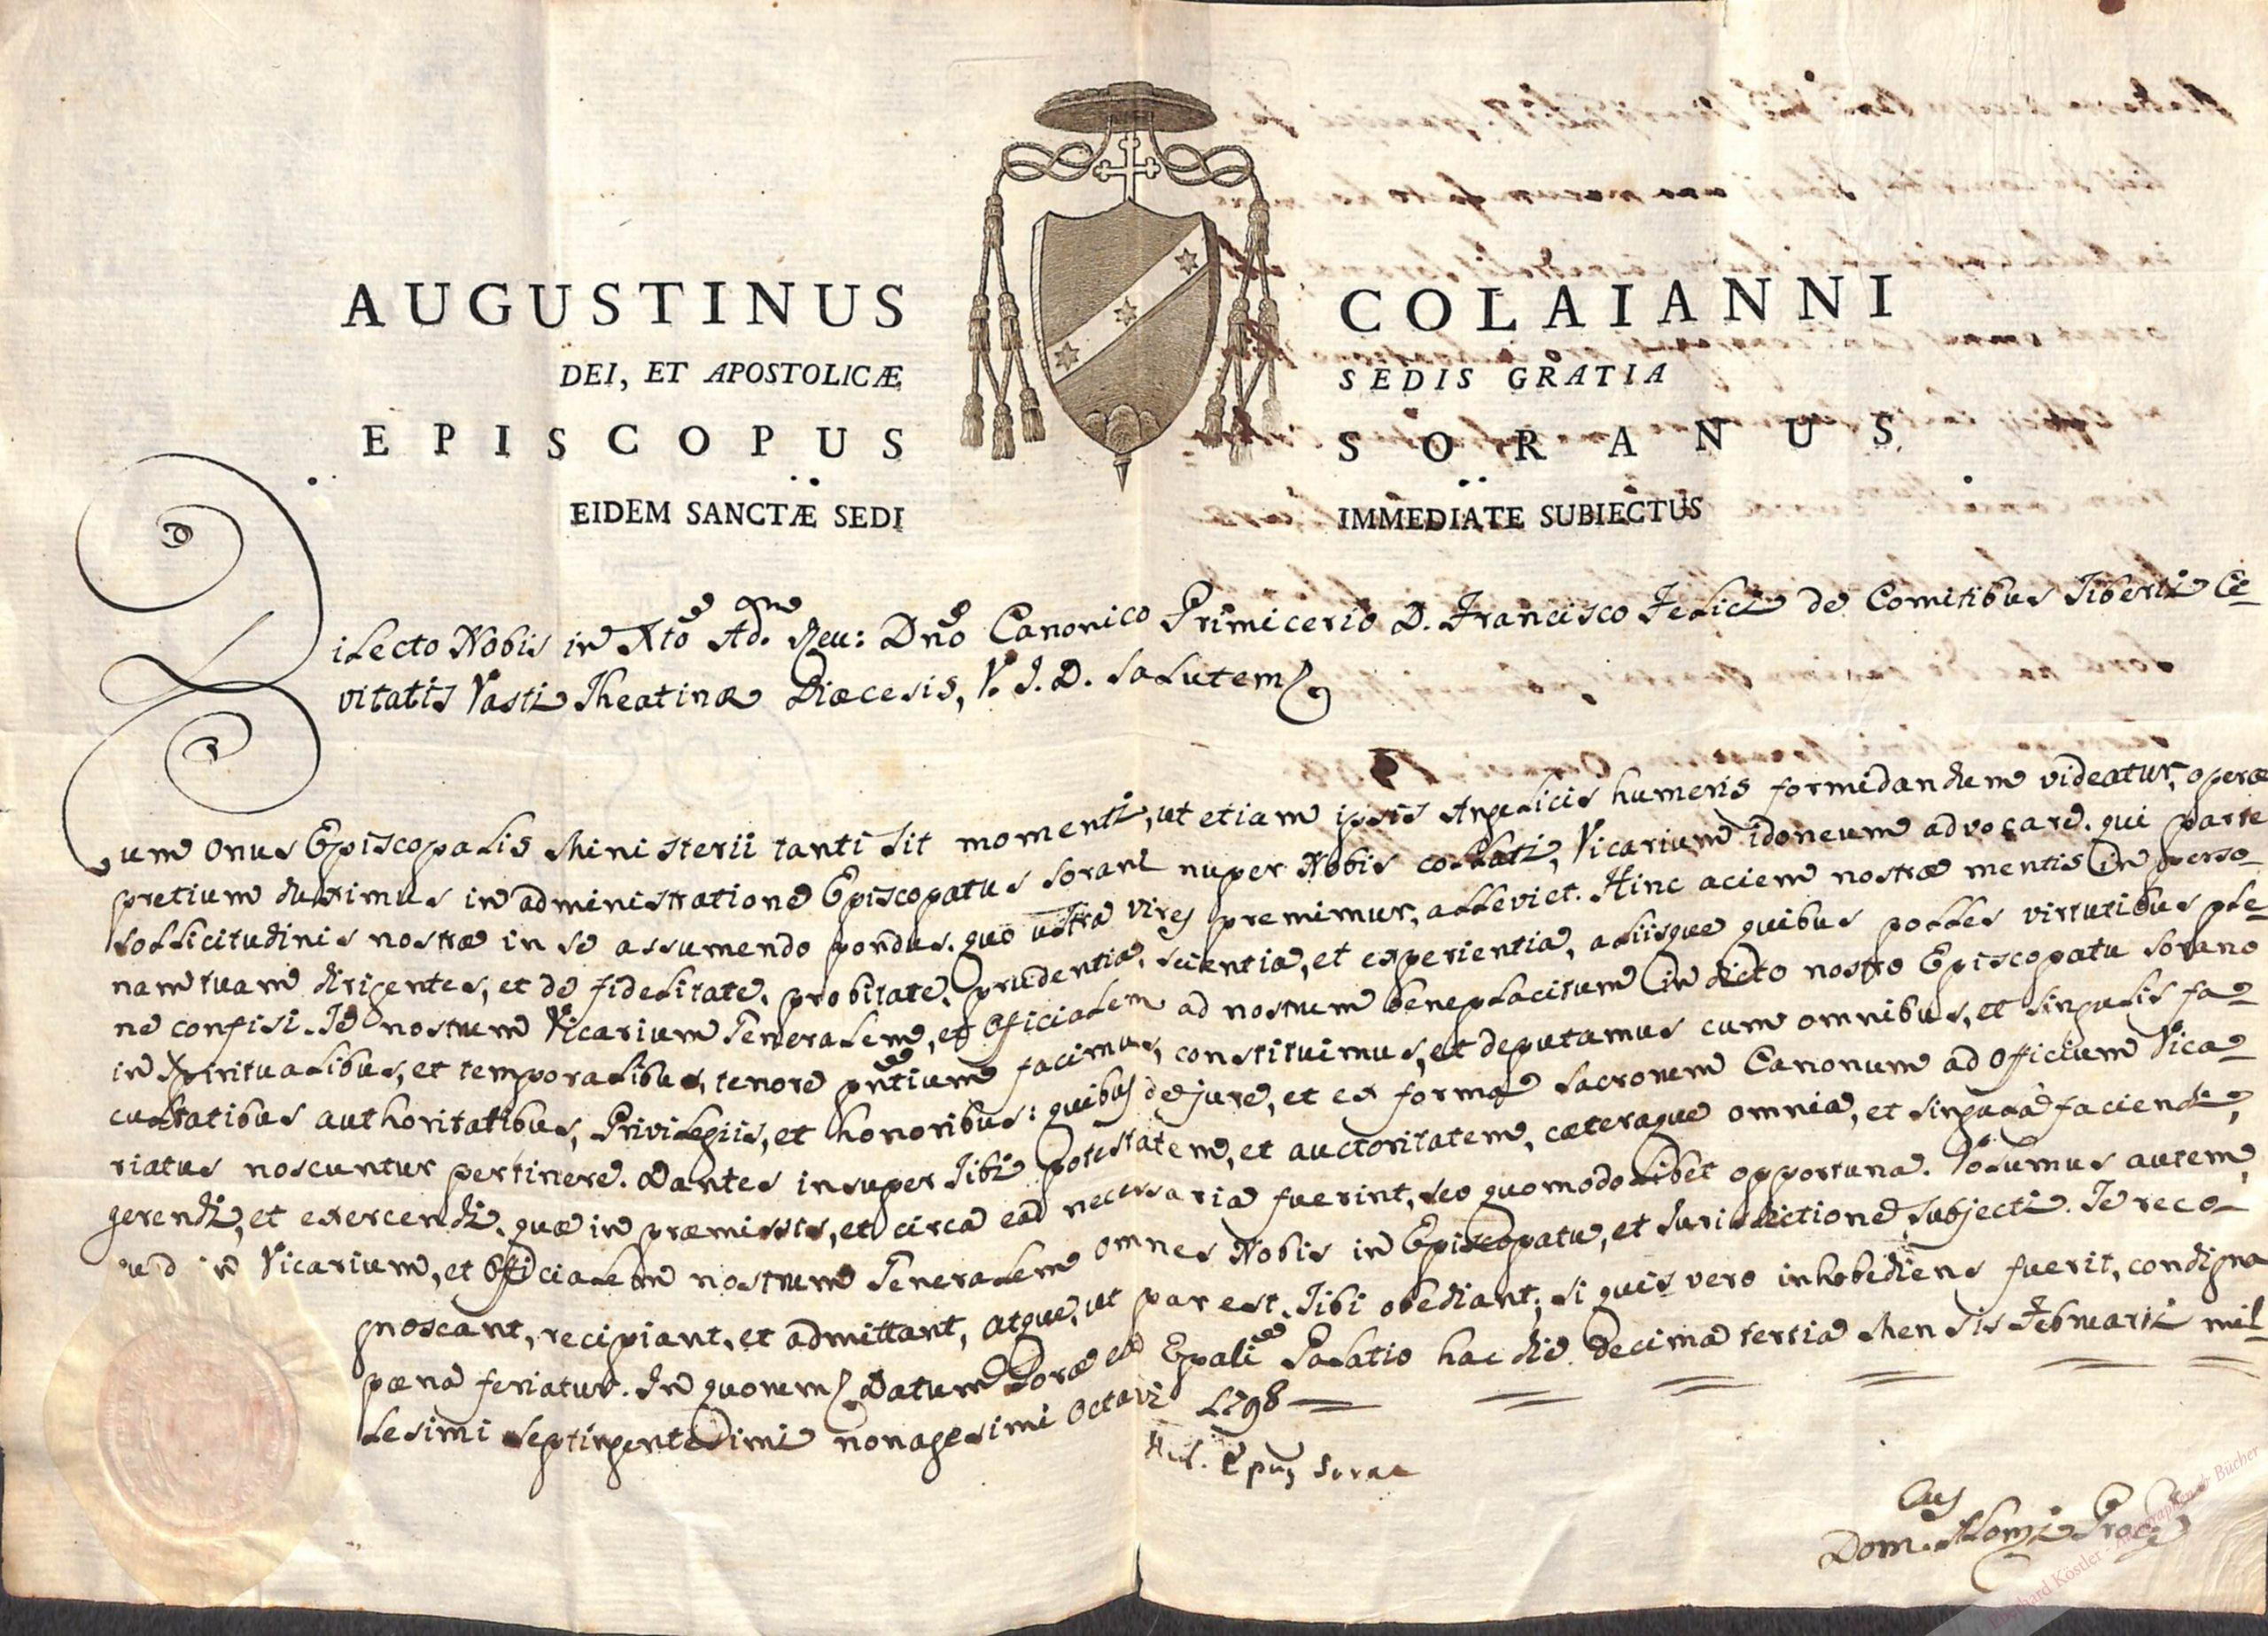 AUGUSTINUS COLAIANNI
DEI, ET APOSTOLICÆ SEDIS GRATIA
EPISCOPUS SORANUS
EIDEM SANCTÆ SEDI IMMEDIATE SUBIECTUS
Dilecto Nobis in Xto Adm. Reu: Dno Canonico Primicerio D. Francisco Felici de Comitibus Tiberii Ci-
vitatis Vasti Theatinæ Diæcesis, V. J. D. Salutem
Cum Onus Episcopalis Ministerii tanti sit momenti, ut etiam ipsis Angelicis humeris formidandum videatur, operæ
pretium duximus in administratione Episcopatus Sorani nuper Nobis collati, Vicarium idoneum advocare, qui parte
sollicitudinis nostræ in se assumendo pondus, quo ultra vires premimur, alleviet. Hinc aciem nostræ mentis in perso-
nam tuam dirigentes, et de fidelitate, probitate, prudentia, scientia, et experientia, aliisque quibus polles virtutibus ple-
ne confisi. Te nostrum Vicarium Generalem, et Officialem ad nostrum beneplacitum in dicto nostro Episcopatu Sorano
in Spiritualibus, et temporalibus, tenore pntium facimus, constituimus, et deputamus cum omnibus, et singulis fa-
cultatibus authoritatibus, Privilegiis, et honoribus: quibus de jure, et ex forma Sacrorum Canonum ad Officium Vica-
riatus noscuntur pertinere. Dantes insuper Tibi potestatem, et auctoritatem, cæteraque omnia, et singula faciendi,
gerendi, et exercendi, quæ in præmissis, et circa ead necessaria fuerint, seo quomodolibet opportuna. Volumus autem,
ud in Vicarium, et Officialem nostrum Generalem omnes Nobis in Episcopatu, et Jurisdictione subjecti. Te reco-
gnoscant, recipiant, et admittant, atque, ut par est, Tibi obediant; si quis vero inhobediens fuerit, condigna
pœna feriatur. In quorum Datum Soræ ex Epali Palatio hac die decima tertia Mensis Februarii mil-
lesimi septingentesimi nonagesimi octavi 1798
Aug. Epus Sorae
Dom. Proc
Eberhard Köstler - Autographen & Bücher